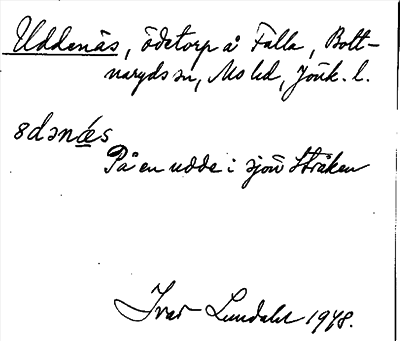 Uddenäs, ödetorp å Falla, Bott-
naryds sn, Mo hd, Jönk. l.
8dənæ̀s
På en udde i sjön Stråken
Ivar Lundahl 1948.